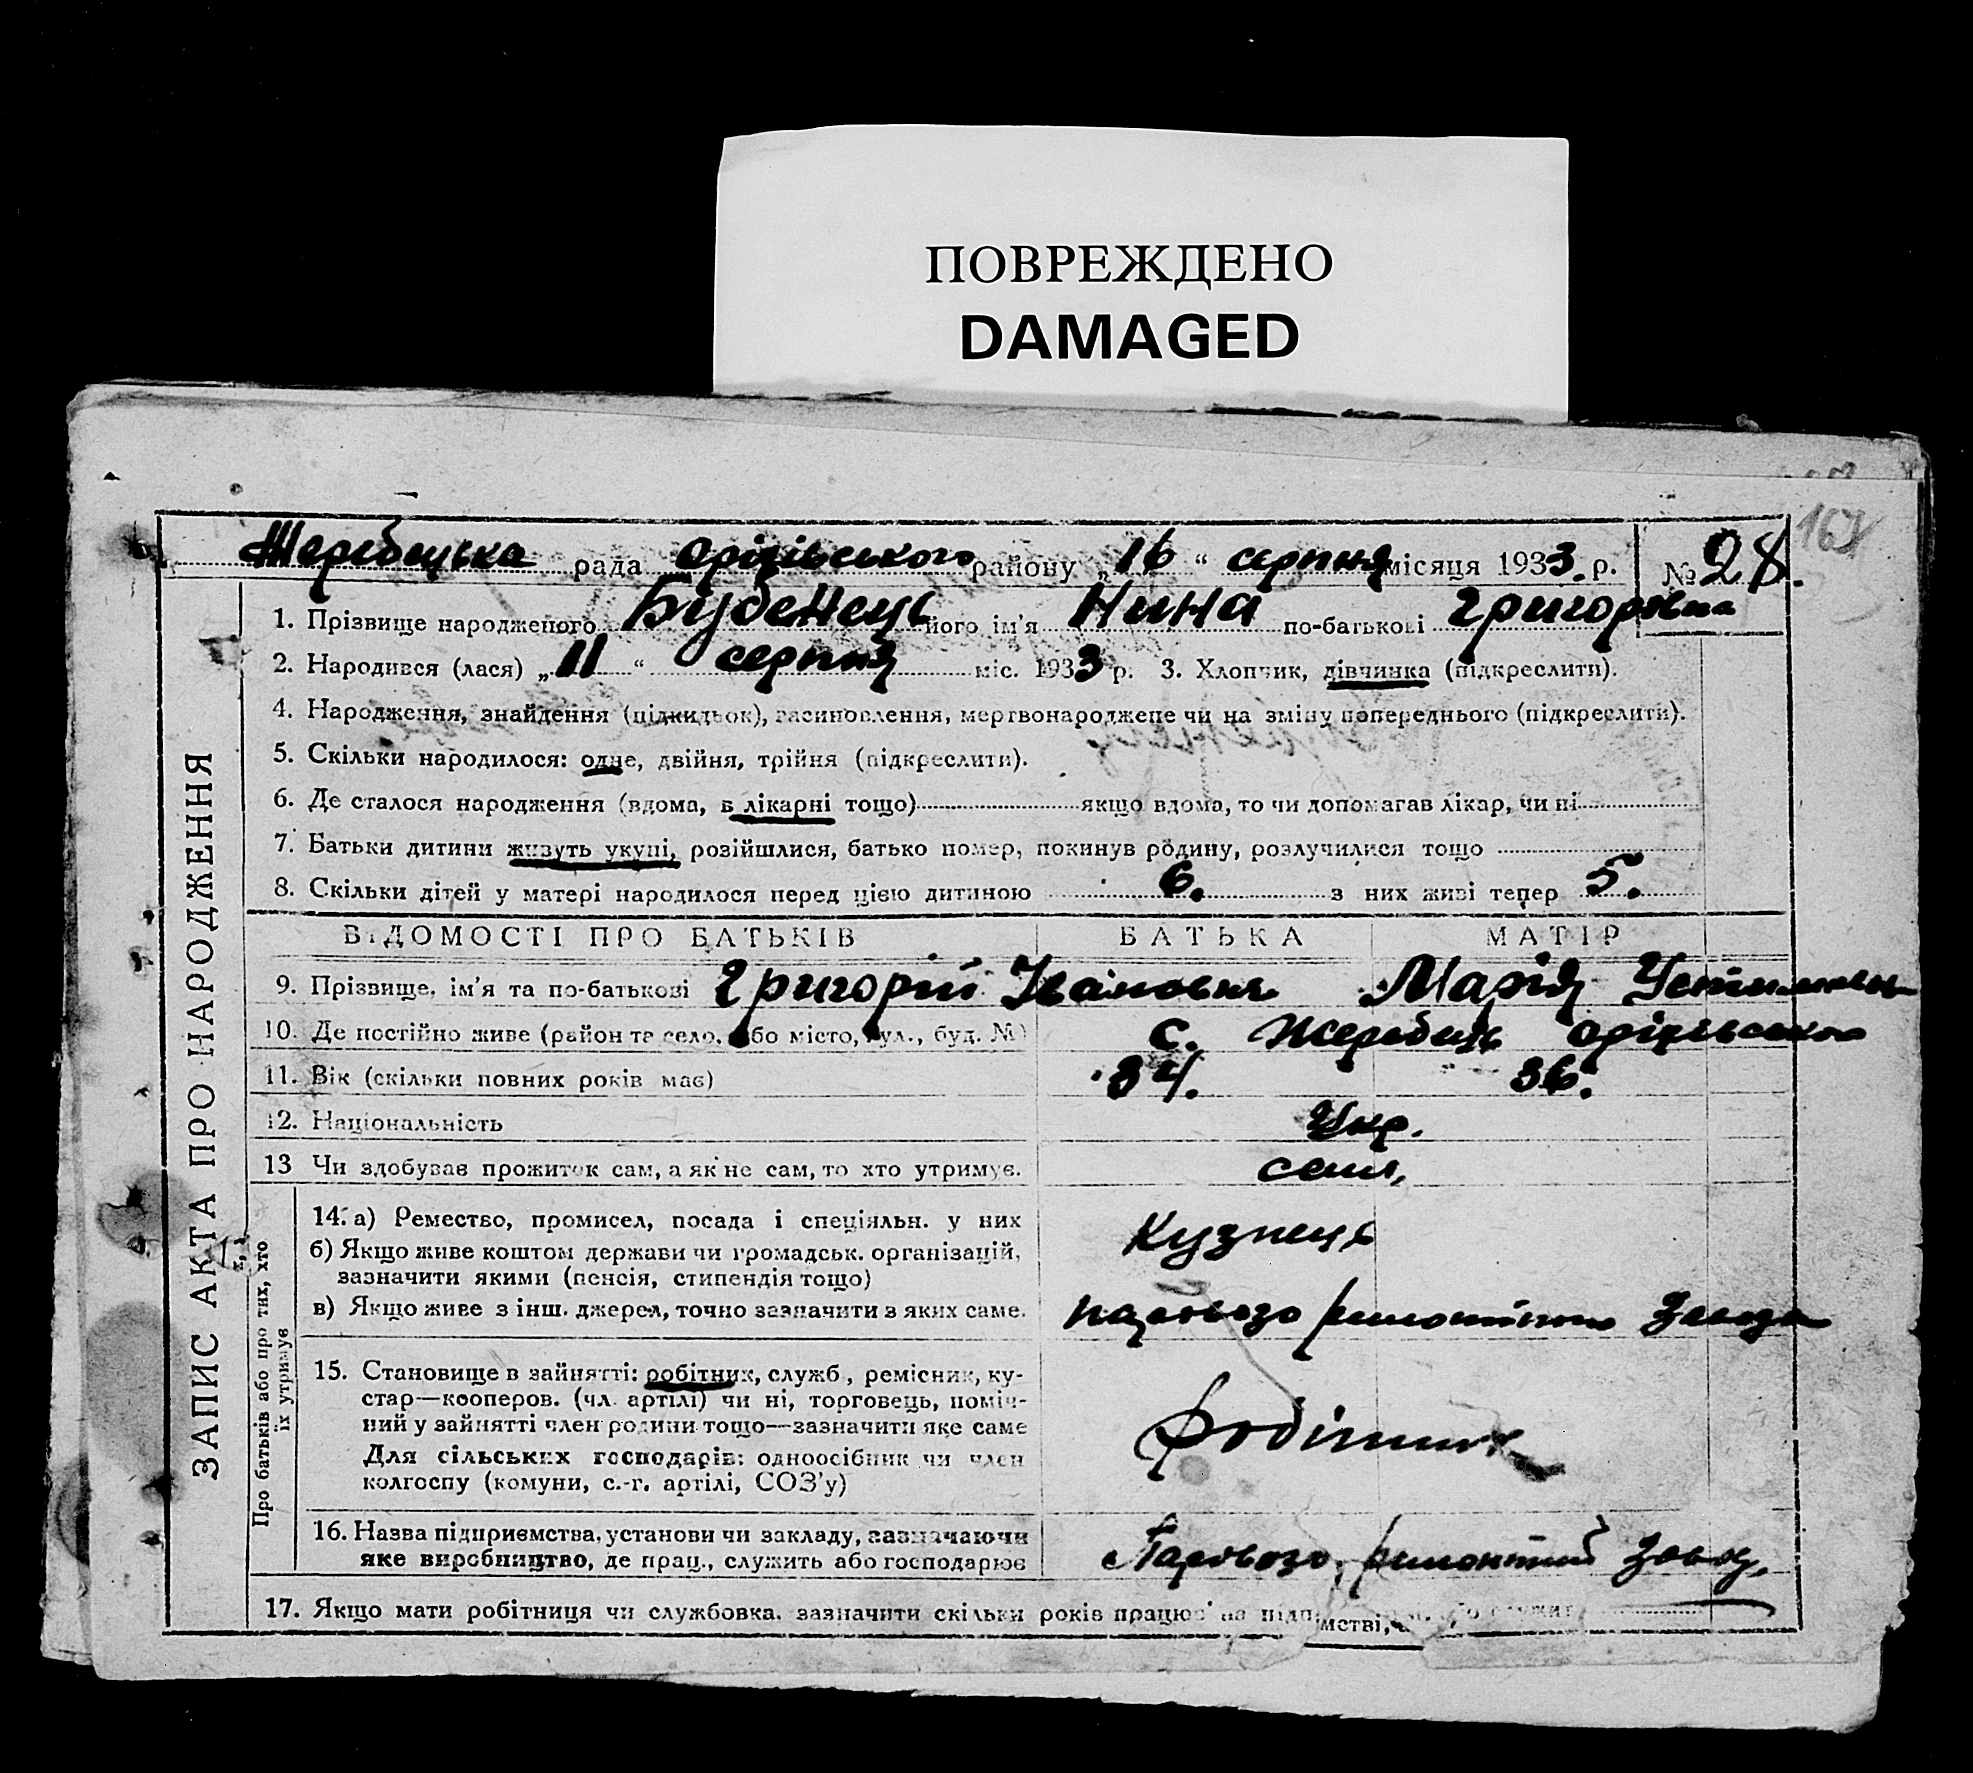 ПОВРЕЖДЕНО
DAMAGED
167
Жеребецька рада оріхівського району „16“ серпня місяця 1933. р. № 28.
1. Прізвище народженого Буденець його ім'я Нина по-батькові Григоровна
2. Народився (лася) „11“ серпня міс. 1933 р. 3. Хлопчик, дівчинка (підкреслити).
4. Народження, знайдення (підкидьок), засиновлення, мертвонароджене чи на зміну попереднього (підкреслити).
5. Скільки народилося: одне, двійня, трійня (підкреслити).
6. Де сталося народження (вдома, в лікарні тощо) якщо вдома, то чи допомагав лікар, чи ні
7. Батьки дитини живуть укупі, розійшлися, батько помер, покинув родину, розлучилися тощо
8. Скільки дітей у матері народилося перед цією дитиною 6. з них живі тепер 5.
ВІДОМОСТІ ПРО БАТЬКІВ БАТЬКА МАТІР
9. Прізвище, ім'я та по-батькові Григорій Іванович Марія
10. Де постійно живе (район та село, або місто, вул., буд. №) с. Жеребець оріхівського
11. Вік (скільки повних років має) 34. 36.
12. Національність Укр.
13 Чи здобував прожиток сам, а як не сам, то хто утримує.
14. а) Ремество, промисел, посада і спеціяльн. у них Кузнець
б) Якщо живе коштом держави чи громадськ. організацій,
зазначити якими (пенсія, стипендія тощо)
в) Якщо живе з інш. джерел, точно зазначити з яких саме. паровозо ремонтного завода
15. Становище в зайнятті: робітник, служб., ремісник, ку-
стар—кооперов. (чл. артілі) чи ні, торговець, поміч-
ний у зайнятті член родини тощо—зазначити яке саме робітник
Для сільських господарів: одноосібник чи член
колгоспу (комуни, с.-г. артілі, СОЗ'у)
16. Назва підприємства, установи чи закладу, зазначаючи
яке виробництво, де прац., служить або господарює Паровозо ремонтний завод,
17. Якщо мати робітниця чи службовка, зазначити скільки років працює на
ЗАПИС АКТА ПРО НАРОДЖЕННЯ
Про батьків або про тих, хто
їх утримує